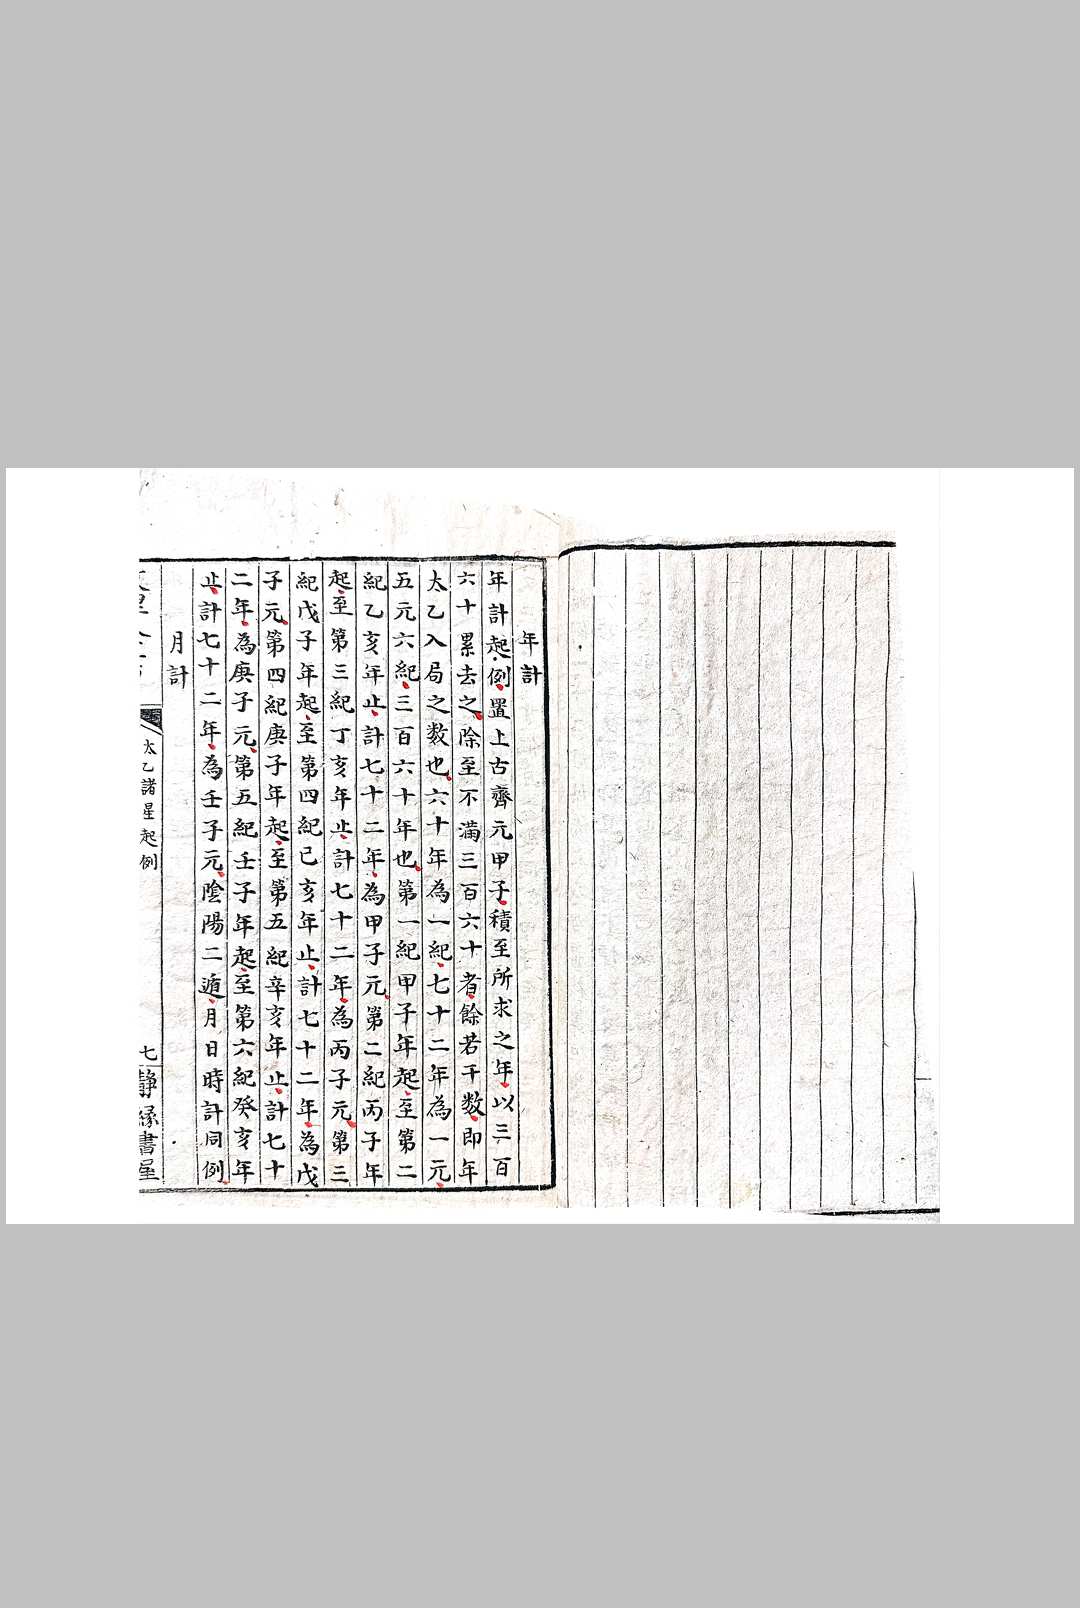 年計
年計起例置上古齊元甲子積至所求之年以三百
六十累去之除至不滿三百六十者餘若干数即年
太乙入局之数也六十年為一紀七十二年為一元
五元六紀三百六十年也第一紀甲子年起至第二
紀乙亥年止計七十二年為甲子元第二紀丙子年
起至第三紀丁亥年止計七十二年為丙子元第三
紀戊子年起至第四紀己亥年止計七十二年為戊
子元第四紀庚子年起至第五紀辛亥年止計七十
二年為庚子元第五紀壬子年起至第六紀癸亥年
止計七十二年為壬子元陰陽二遁月日時計同例
月計
太乙諸星起例
七
靜緣書屋